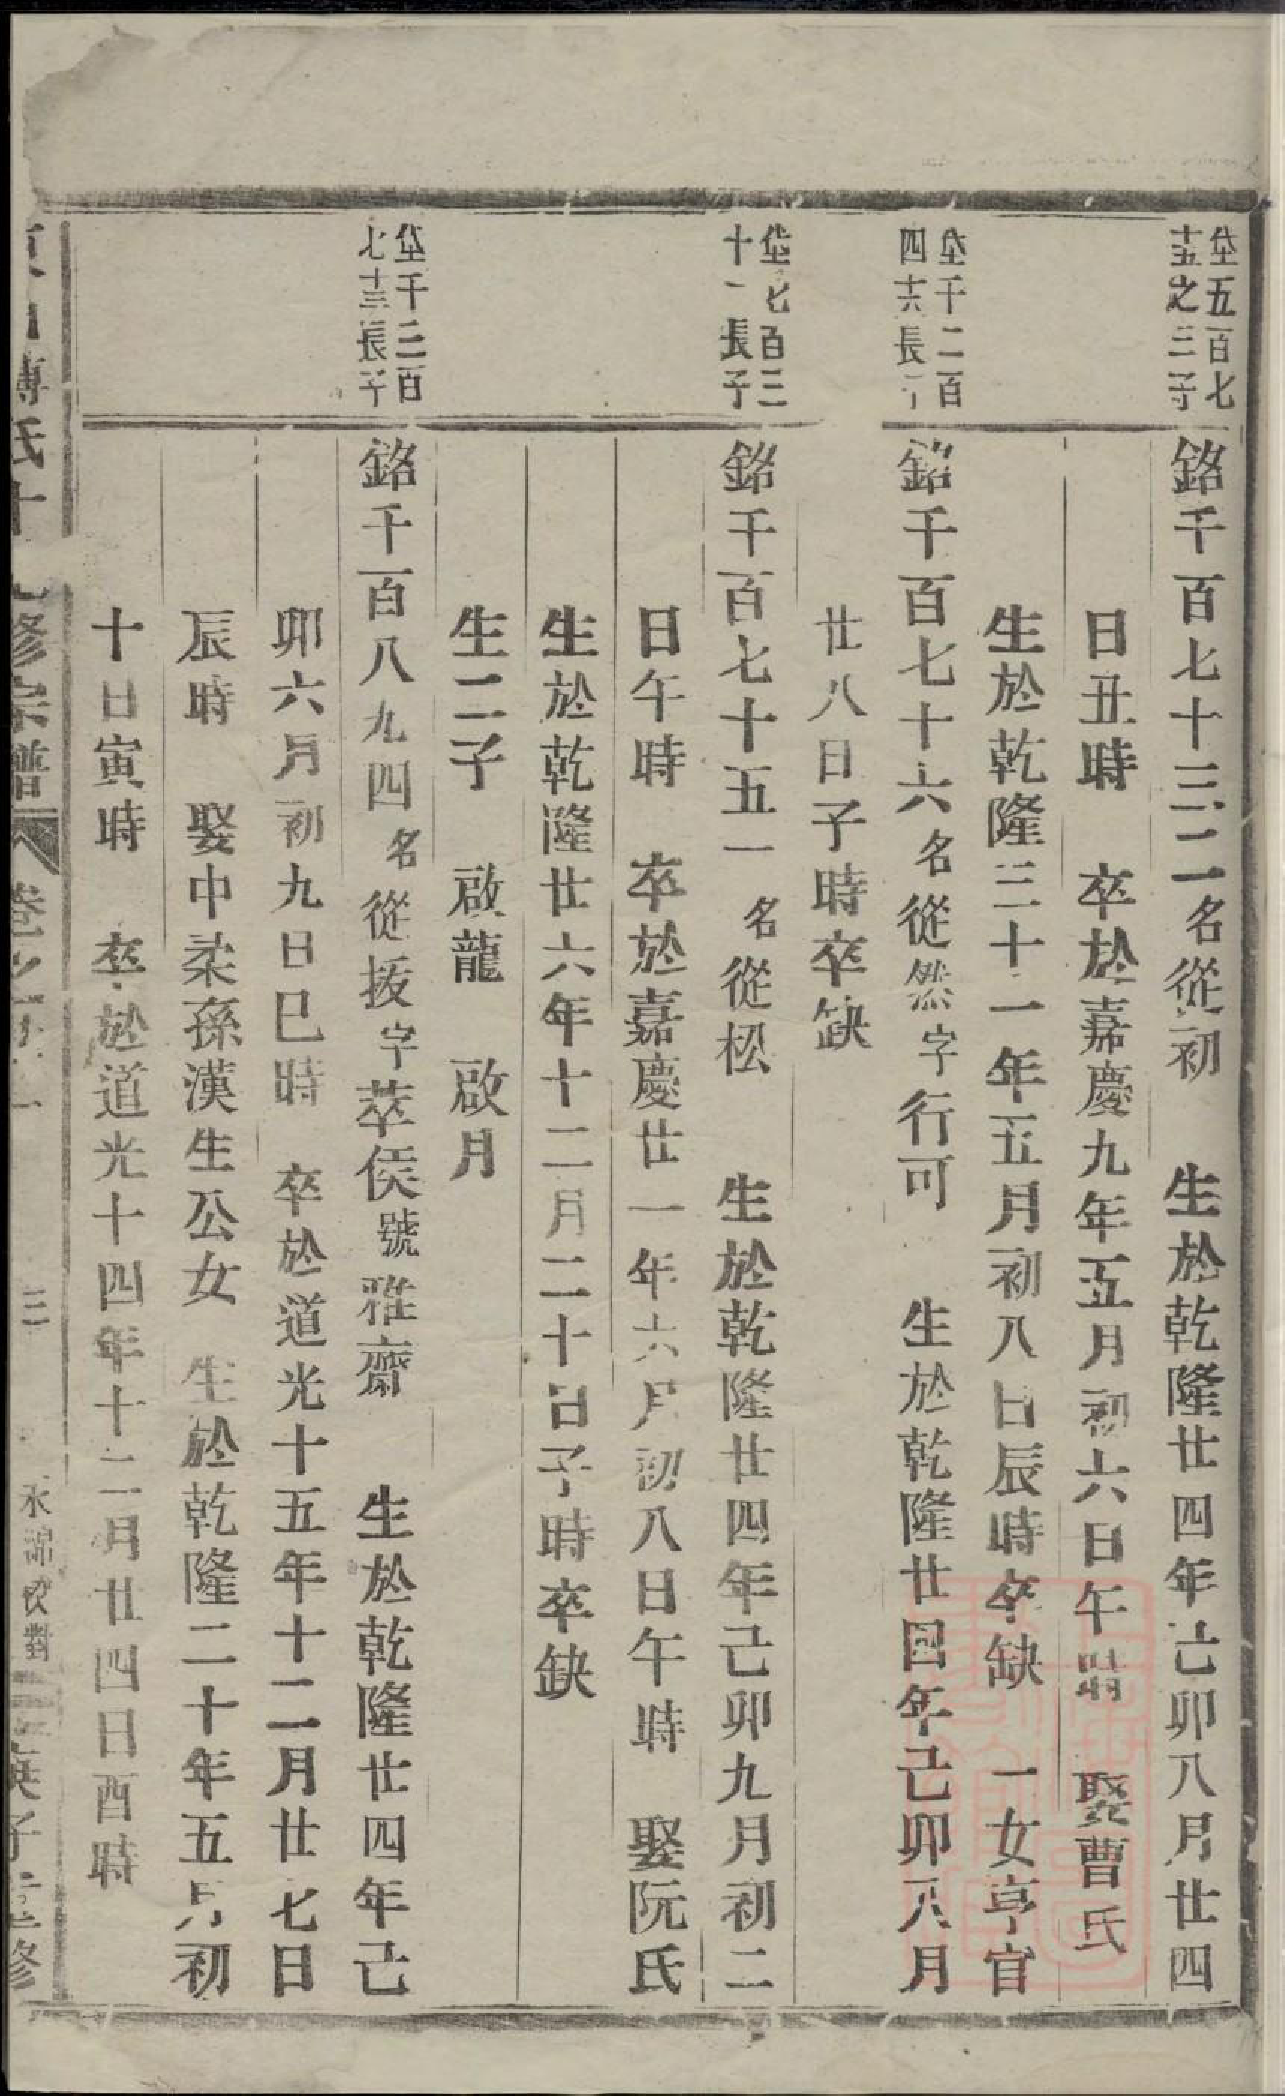 垈五百七
十五之三子
銘千百七十三二名從初　生於乾隆廿四年己卯八月廿四
日丑時　卒於嘉慶九年五月初六日午時　娶曹氏
生於乾隆三十一年五月初八日辰時卒缺　一女亨官
垈千二百
四十六長子
銘千百七十六名從然字行可　生於乾隆廿四年己卯八月
廿八日子時卒缺
垈七百三
十一長子
銘千百七十五一名從松　生於乾隆廿四年己卯九月初二
日午時　卒於嘉慶廿一年六月初八日午時　娶阮氏
生於乾隆廿六年十二月二十日子時卒缺
生二子　啟龍　啟月
垈千三百
七十三長子
銘千百八九四名從拔字萃侯號雅齋　生於乾隆廿四年己
卯六月初九日巳時　卒於道光十五年十二月廿七日
辰時　娶中柔孫漢生公女　生於乾隆二十年五月初
十日寅時　卒於道光十四年十二月廿四日酉時
傅氏十九修宗譜
卷之
三
永錦校對